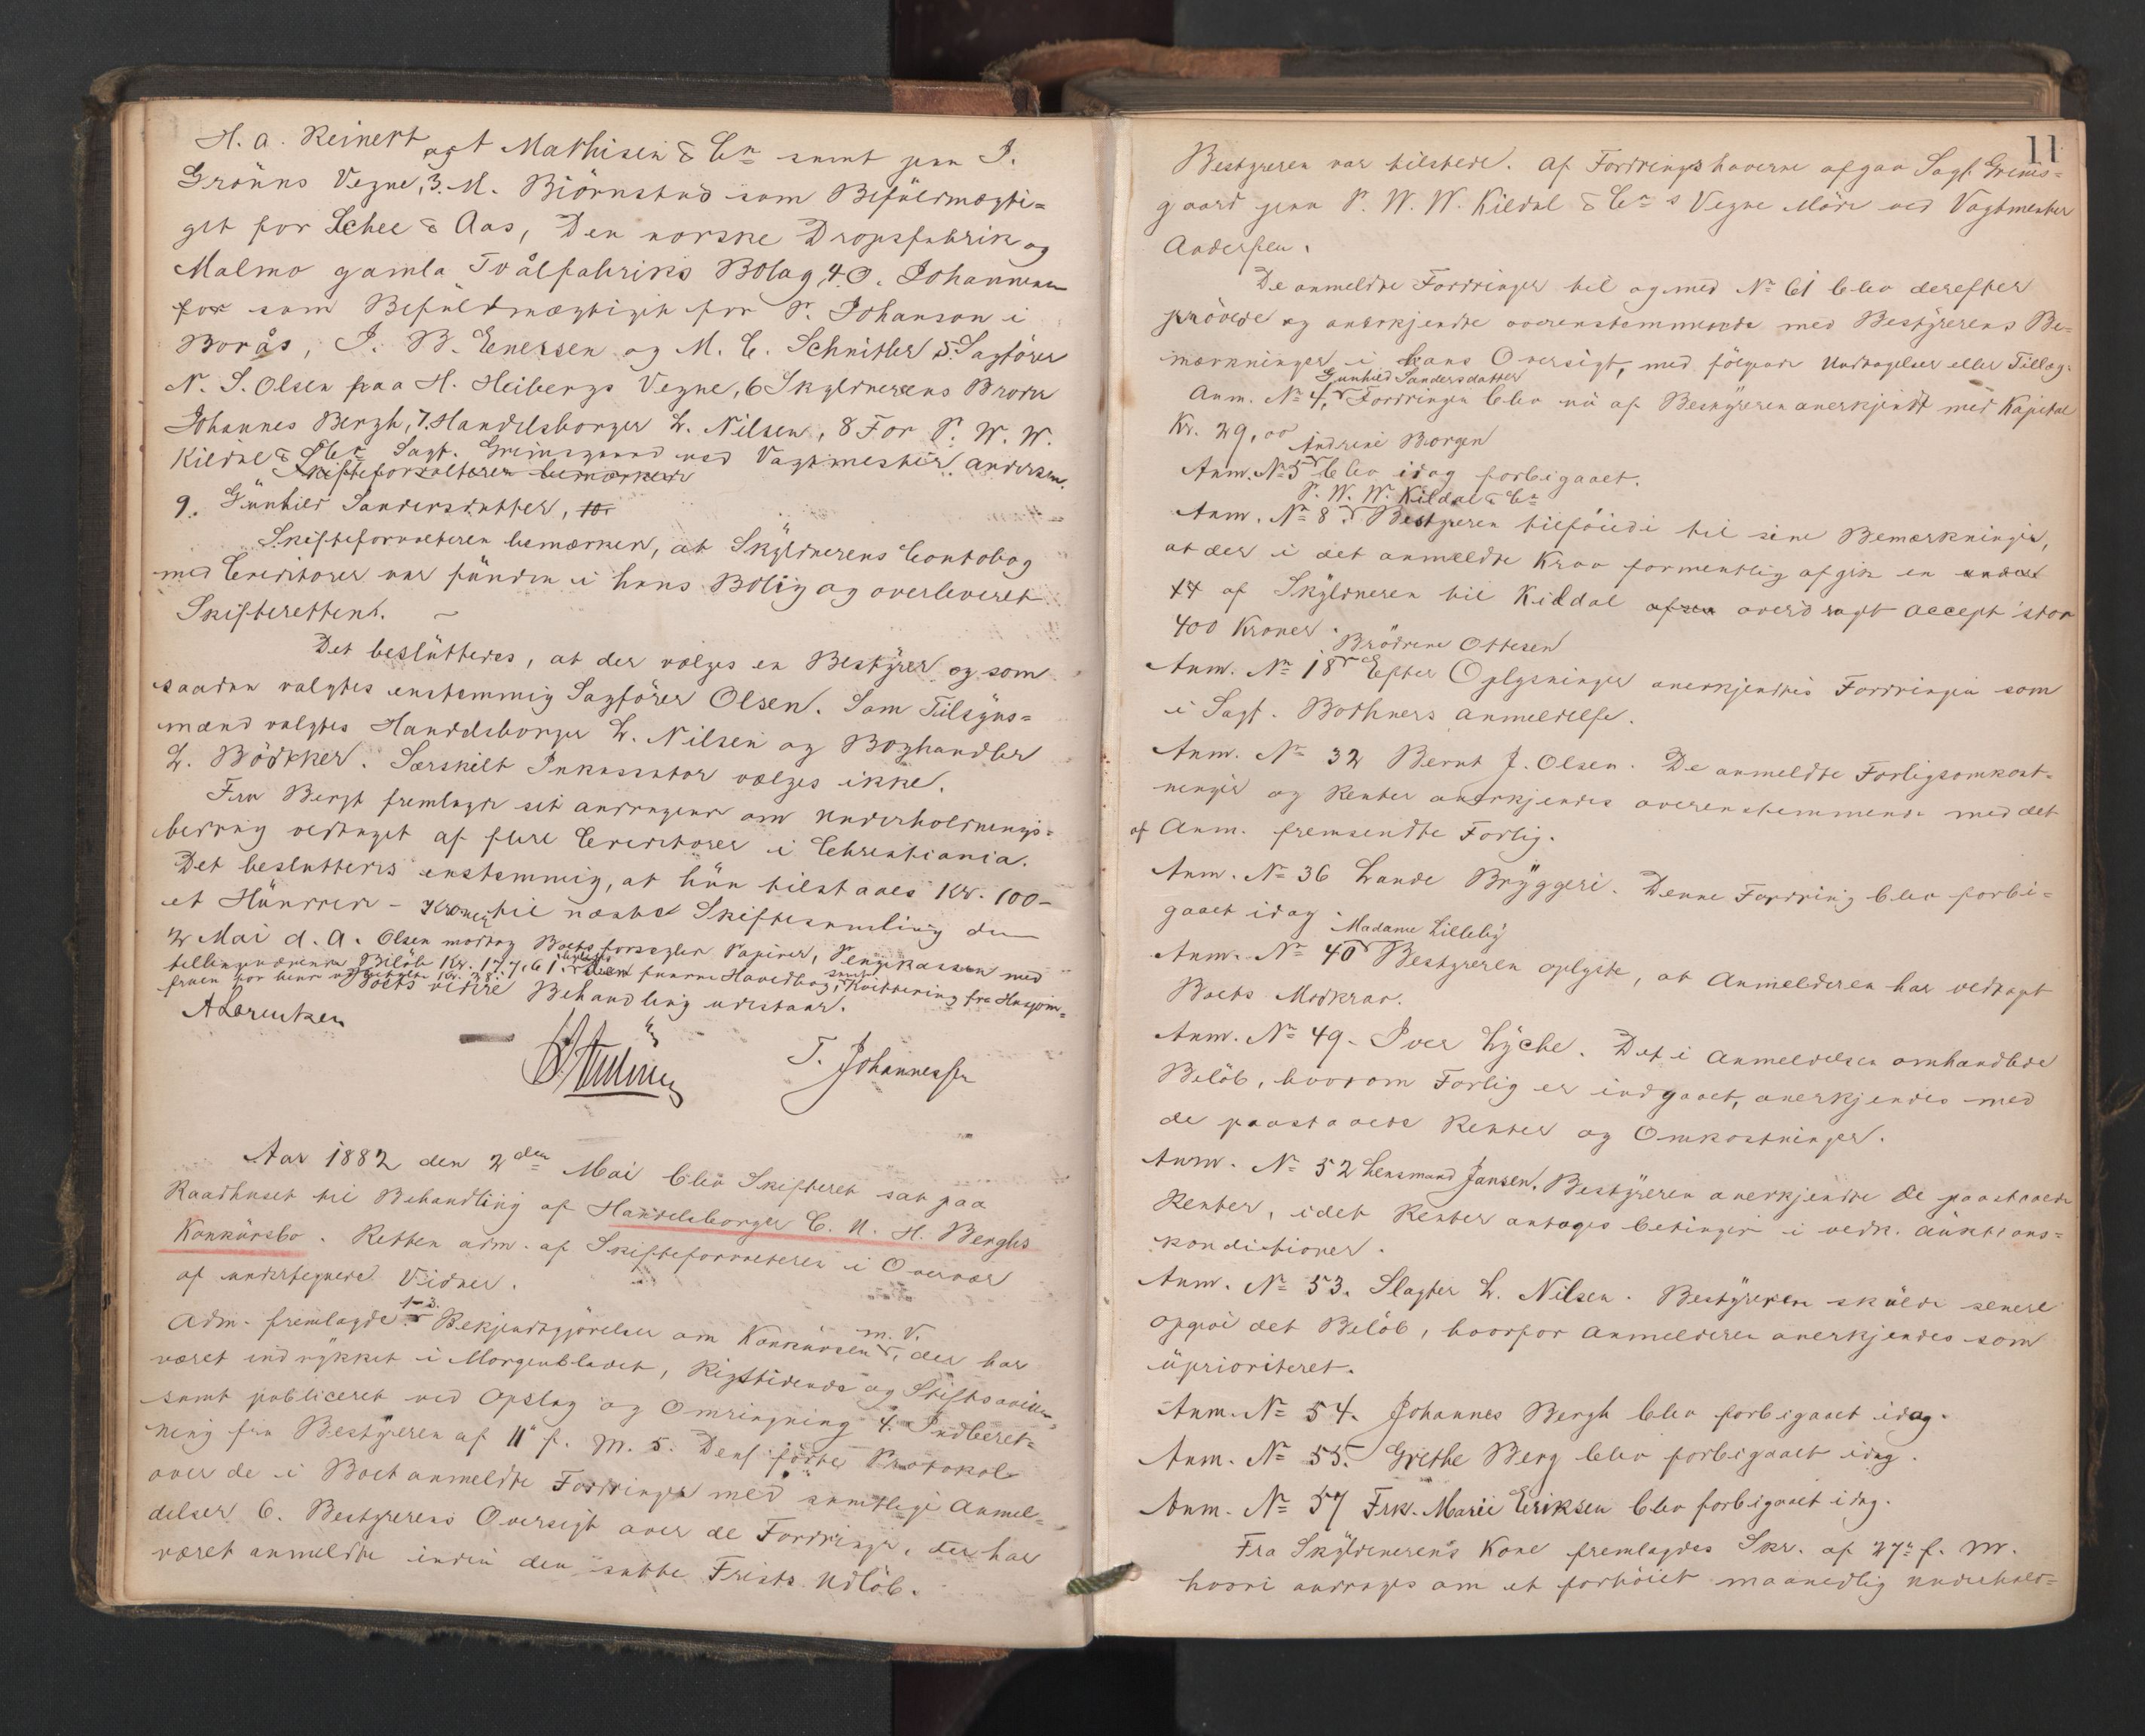 H. A. Reinert agt Mathisen & Co samt paa J.
Grönns Vegne, 3. M. Biörnstad som Befuldmægti=
get for Schee & Aas, Den norske Dropsfabrik og
Malmo gamla Tvålfabriks Bolag, 4. O. Johannesen
for som Befuldmægtiget for P. Johanson i
Borås, J. B. Enersen og M. C. Schnitler 5. Sagförer
N. S. Olsen paa H. Heibergs Vegne, 6 Skyldnerens Broder
Johannes Bergh, 7. Handelsborger L. Nilsen, 8 For P. W. W.
Kildal & Co Sagf. Greinsgaard ved Vagtmester Andersen.
Skifteforvalteren bemærkede
9. Gunhild Sandersdatter, 10.
Skifteforvalteren bemærker, at Skyldnerens Contobog
med Creditorer var funden i hans Bolig og overleveret
Skifteretten.
Det besluttedes, at der vælges en Bestyrer og som
saadan valgtes enstemmig Sagförer Olsen. Som Tilsyns=
mænd valgtes Handelsborger L. Nilsen og Boghandler
L. Bödtker. Særskilt Inkassator vælges ikke.
Fru Bergh fremlagde sit andragende om Underholdnings=
bidrag vedtaget af flere Creditorer i Christiania.
Det besluttedes enstemmig, at hun tilstaaes Kr. 100-
et Hundrede - Kroner til næste Skiftesamling den
2 Mai d. A. Olsen modtog Boets forseglede Papirer, Pengekassen med
tilligeværende Belöb Kr. 177,61 funden Hovedbog, samt Kvittering fra Husjom=
fruen for
Boets videre Behandling udestaar.
A Lorentzen
T. Johannessen
Aar 1882 den 2den Mai blev Skifteret sat paa
Raadhuset til Behandling af Handelsborger C. N. H. Berghs
Konkursbo. Retten adm. af Skifteforvalteren i Overvær
af undertegnede Vidner.
Adm. fremlagde 1-3. Bekjendtgjörelser om Konkursen m. v., der har
været indrykket i Morgenbladet, Rigstidende og Stiftsavisen
samt publiceret ved Opslag og Omringning 4. Indberet=
ning fra Bestyreren af 11 f. M. 5. Dens förte Protokol
over de i Boet anmeldte Fordringer med samtlige Anmel=
delser 6. Bestyrerens Oversigt over de Fordringer, der har
været anmeldte inden den satte Frists Udlöb.
11
Bestyreren var tilstede. Af Fordringshaverne afgav Sagf. Greins=
gaard paa P. W. W. Kildal & Co s Vegne Möde ved Vagtmester
Andersen.
De anmeldte Fordringer til og med No 61 blev derefter
prövede og anerkjendte overenstemmende med Bestyrerens Be=
mærkninger i hans Oversigt, med fölgende Undtagelser eller Tillæg:
Gunhild Sandersdatter
Anm. No 4, Fordringen blev nu af Bestyreren anerkjendt med Kapital
Kr. 29,00
Andrine Borgen
Anm. No 5 blev idag forbigaaet.
P. W. W. Kildal & Co
Anm. No 8. Bestyreren tilföiede til sine Bemærkninger,
at der i det anmeldte Krav formentlig afgik en under
14 af Skyldneren til Kildal afsen overdragt Accept stor
400 Kroner.
Brödrene Ottesen
Anm. No 18 Efter Oplysninger anerkjendtes Fordringen som
i Sagf. Bothners Anmeldelse.
Anm. No 32 Bernt J. Olsen. De anmeldte Forligsomkost=
ninger og Renter anerkjendes overenstemmende med det
af Anm. fremsendte Forlig.
Anm. No 36 Lande Bryggeri. Denne Fordring blev forbi=
gaaet idag.
Madame Lilleby
Anm. No 40 Bestyreren oplyste, at Anmelderen har vedtagt
Boets Modkrav.
Anm. No 49. Iver Lyche. Det i Anmeldelsen omhandlede
Belöb, hvorom Forlig er indgaaet, anerkjendes med
de paastaaede Renter og Omkostninger.
Anm. No 52 Lensmand Jansen. Bestyreren anerkjendte de paastaaede
Renter, idet Renter antages betinget i vedk. Auktions=
konditioner.
Anm. No 53. Slagter L. Nilsen. Bestyreren skulde senere
opgive det Belöb, hvorfor Anmelderen anerkjendes som
uprioriteret.
Anm. No 54. Johannes Bergh blev forbigaaet idag.
Anm. No 55. Grethe Berg blev forbigaaet idag.
Anm. No 57 Frk. Marie Eriksen blev forbigaaet idag.
Fra Skyldnerens Kone fremlagdes Skr. af 27 f. M.
hvori andrages om et forhöiet maanedlig Underhold=